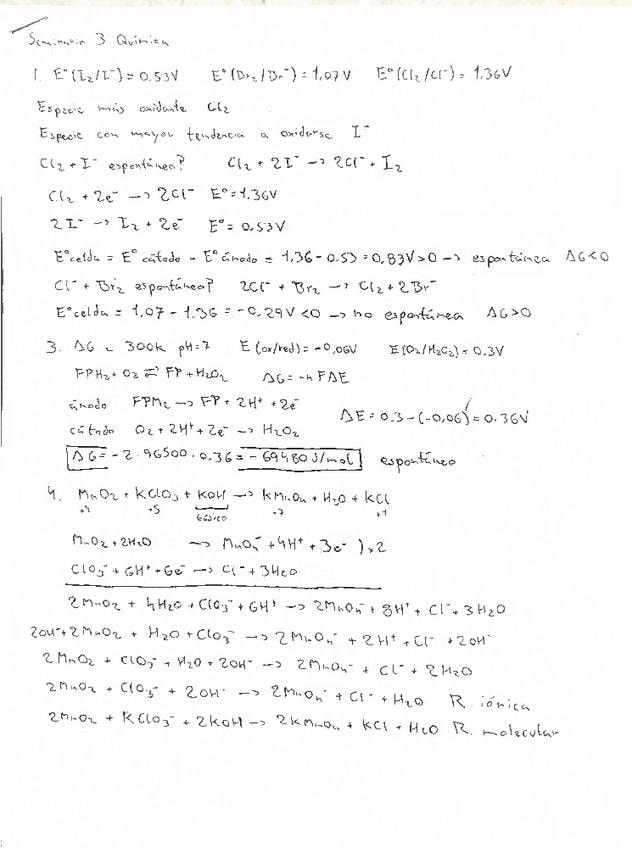 Seminario 3 Química
1. E°(I₂/I⁻) = 0.53V E°(Br₂/Br⁻) = 1,07V E°(Cl₂/Cl⁻) = 1,36V
Especie más oxidante Cl₂
Especie con mayor tendencia a oxidarse I⁻
Cl₂ + I⁻ espontánea? Cl₂ + 2I⁻ → 2Cl⁻ + I₂
Cl₂ + 2e⁻ → 2Cl⁻ E° = 1,36V
2I⁻ → I₂ + 2e⁻ E° = 0,53V
E°celda = E°cátodo - E°ánodo = 1,36 - 0.53 = 0,83V > 0 → espontánea ΔG<0
Cl⁻ + Br₂ espontánea? 2Cl⁻ + Br₂ → Cl₂ + 2Br⁻
E°celda = 1,07 - 1.36 = -0,29V < 0 → no espontánea ΔG>0
3. ΔG a 300K pH=7 E(ox/red) = -0,06V E(O₂/H₂O₂) = 0.3V
FPH₂ + O₂ ⇄ FP + H₂O₂ ΔG = -nFΔE
ánodo FPH₂ → FP + 2H⁺ + 2e⁻ ΔE = 0.3 - (-0,06) = 0.36V
cátodo O₂ + 2H⁺ + 2e⁻ → H₂O₂
ΔG = -2 · 96500 · 0,36 = -69480 J/mol espontáneo
4. MnO₂ + KClO₃ + KOH → KMnO₄ + H₂O + KCl
+4 +5 básico +7 -1
MnO₂ + 2H₂O → MnO₄⁻ + 4H⁺ + 3e⁻ ) x2
ClO₃⁻ + 6H⁺ + 6e⁻ → Cl⁻ + 3H₂O
2MnO₂ + 4H₂O + ClO₃⁻ + 6H⁺ → 2MnO₄⁻ + 8H⁺ + Cl⁻ + 3H₂O
2OH⁻ + 2MnO₂ + H₂O + ClO₃⁻ → 2MnO₄⁻ + 2H⁺ + Cl⁻ + 2OH⁻
2MnO₂ + ClO₃⁻ + H₂O + 2OH⁻ → 2MnO₄⁻ + Cl⁻ + 2H₂O
2MnO₂ + ClO₃⁻ + 2OH⁻ → 2MnO₄⁻ + Cl⁻ + H₂O R. iónica
2MnO₂ + KClO₃⁻ + 2KOH → 2KMnO₄ + KCl + H₂O R. molecular